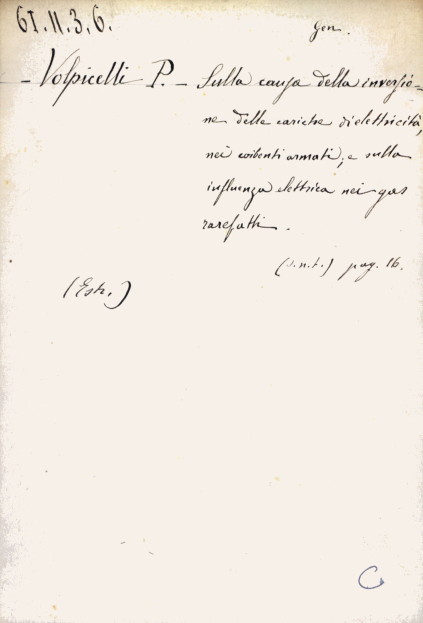 61.11.3.6.
Gen.
- Volpicelli P. - Sulla causa della inversio-
ne delle cariche di elettricità,
nei coibenti armati; e sulla
influenza elettrica nei gas
rarefatti.
(s.n.t.) pag. 16.
(Estr.)
C